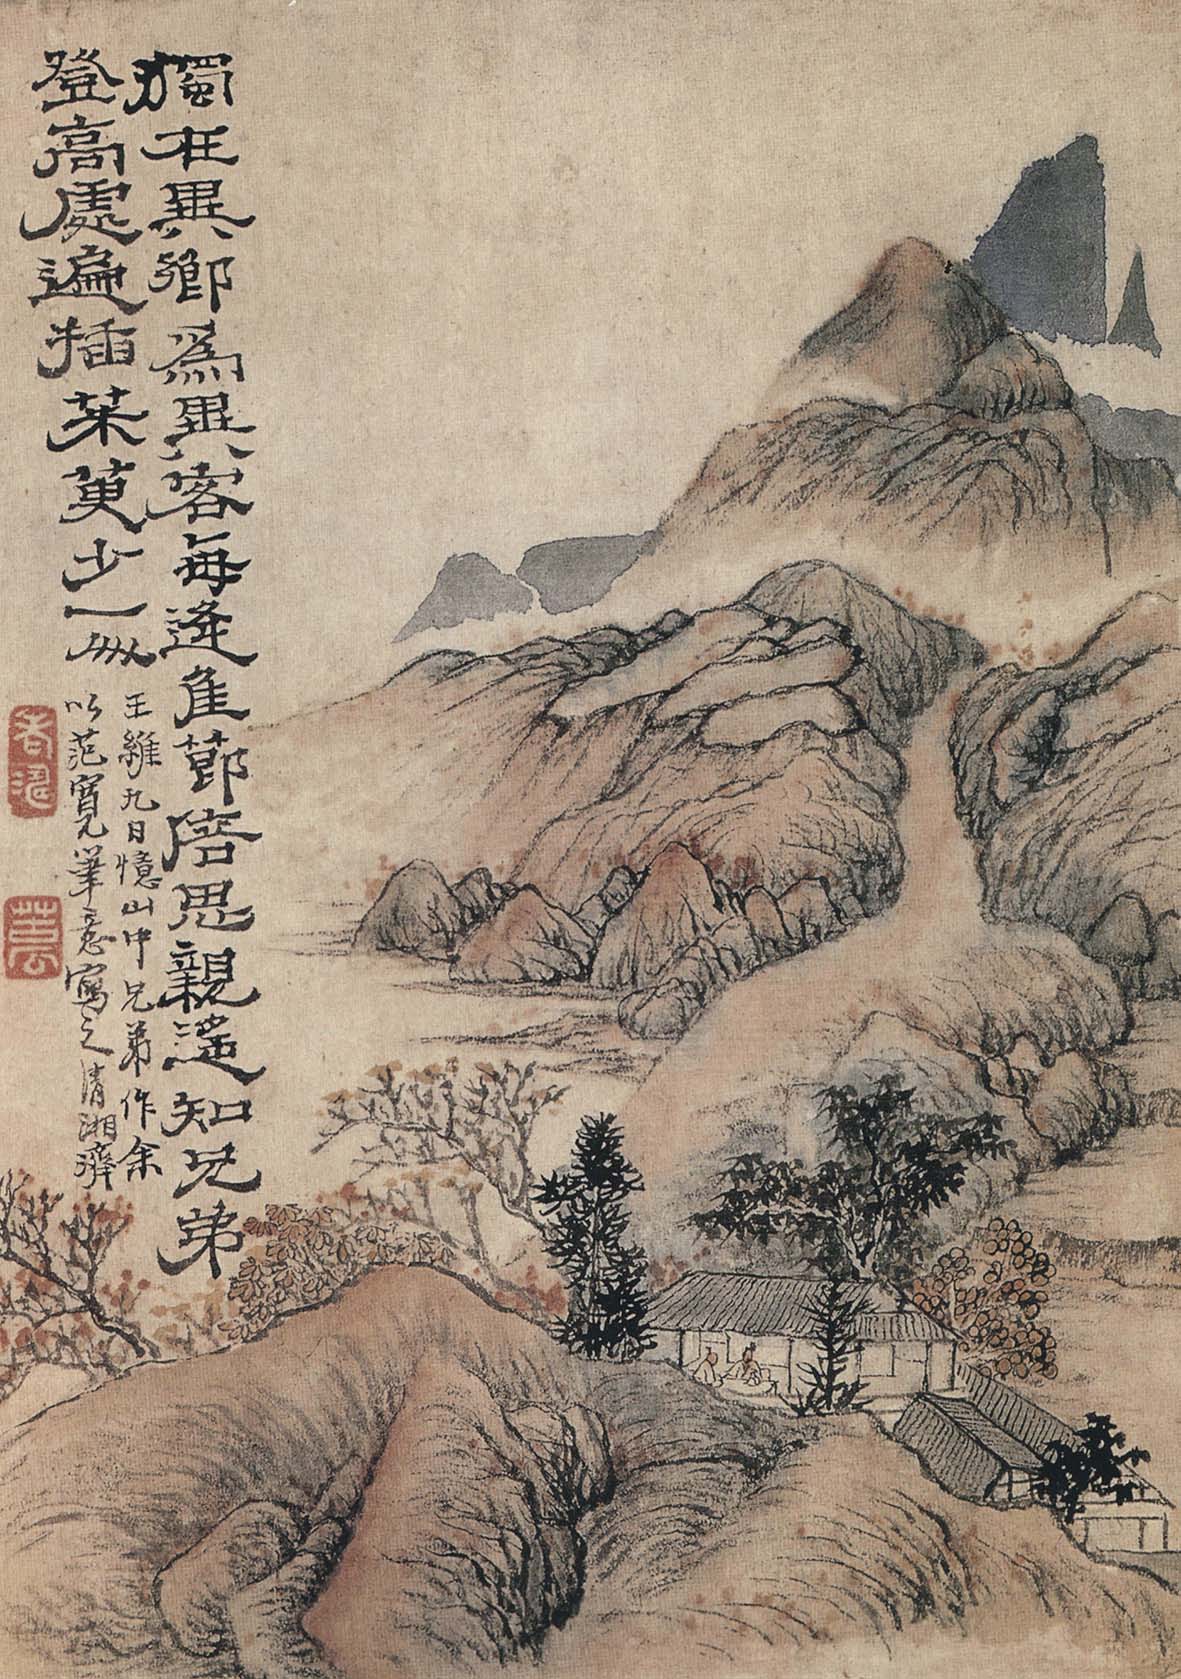 獨在異鄉爲異客每逢佳節倍思親遙知兄弟
登高處遍插茱萸少一人
王維九日憶山中兄弟作余
以范寬筆意寫之清湘濟
老濤